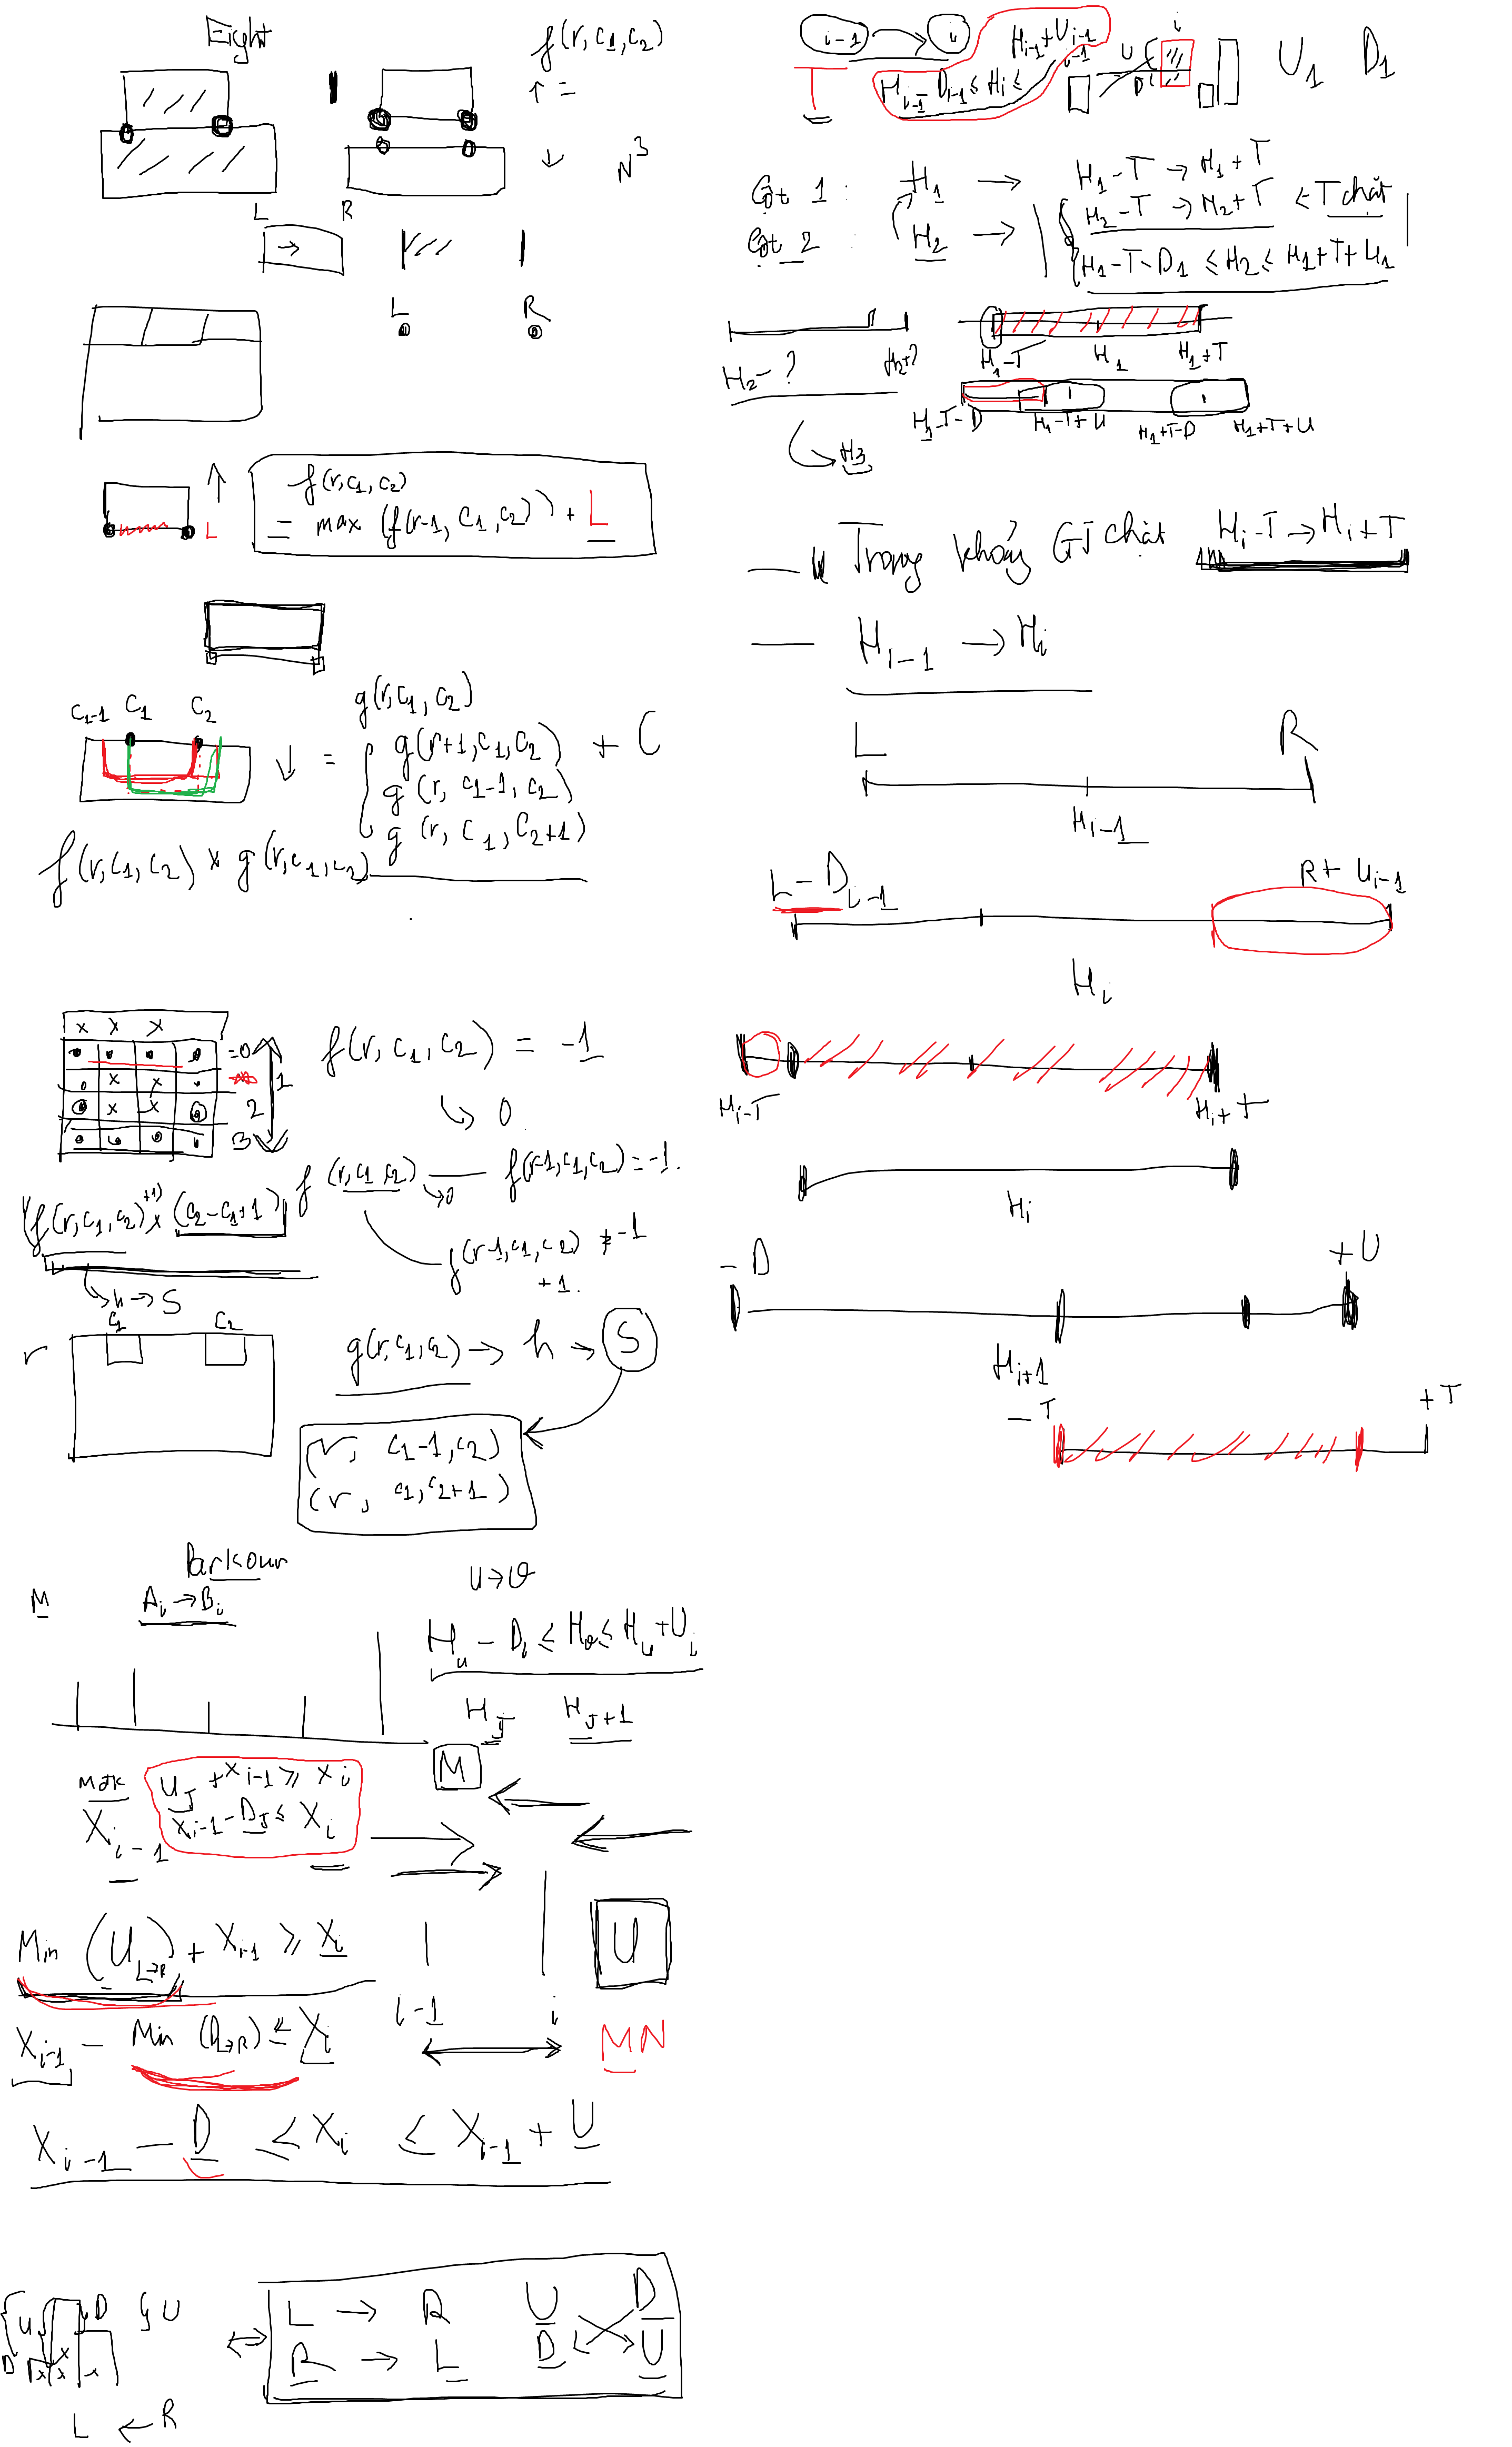 Eight
f(r,c1,c2)
↑ =
↓ N^3
L R
L R
f(r,c1,c2)
= max (f(r-1, c1, c2)) + L
↑ L
c1-1 c1 c2
g(r,c1,c2)
↓ = g(r+1,c1,c2) + C
g (r, c1-1, c2)
g (r, c1, c2+1)
f(r,c1,c2) x g(r,c1,c2)
x x x
=0
x x 1
x x 2
3
f(r, c1, c2) = -1
↳ 0
f (r,c1,c2) ↳0 f(r-1,c1,c2)=-1.
f(r-1,c1,c2) ≠ -1
+1.
(f(r,c1,c2)+1) x (c2-c1+1)
↳ h → S
c1 c2
r
g(r,c1,c2) → h → S
(r, c1-1,c2)
(r, c1,c2+1)
Parkour
M Ai → Bi
u → v
Hu - Di ≤ Hv ≤ Hu + Ui
HJ HJ+1
M
max
Xi-1
UJ + Xi-1 ≥ Xi
Xi-1 - DJ ≤ Xi
Min (U L→R) + Xi-1 ≥ Xi
U
i-1 i
Xi-1 - Min (D L→R) ≤ Xi
MN
Xi-1 - D ≤ Xi ≤ Xi-1 + U
U D U
D x x x
L ← R
L → R U D
R → L D U
i-1 → i
Hi-1+Ui-1
T
Hi-1 - Di-1 ≤ Hi ≤
i-1 U D i
U1 D1
Cột 1 : H1 → H1-T → H1+T
Cột 2 : H2 → H2-T → H2+T ← T chặt
H1-T-D1 ≤ H2 ≤ H1+T+U1
H2-? H2+?
H1-T H1 H1+T
H1-T-D H1-T+U H1+T-D H1+T+U
↳ H3
Trong khoảng GT chặt Hi-T → Hi+T
Hi-1 → Hi
L R
Hi-1
L - Di-1 R + Ui-1
Hi
Hi-T Hi+T
Hi
-D +U
Hi+1
-T +T